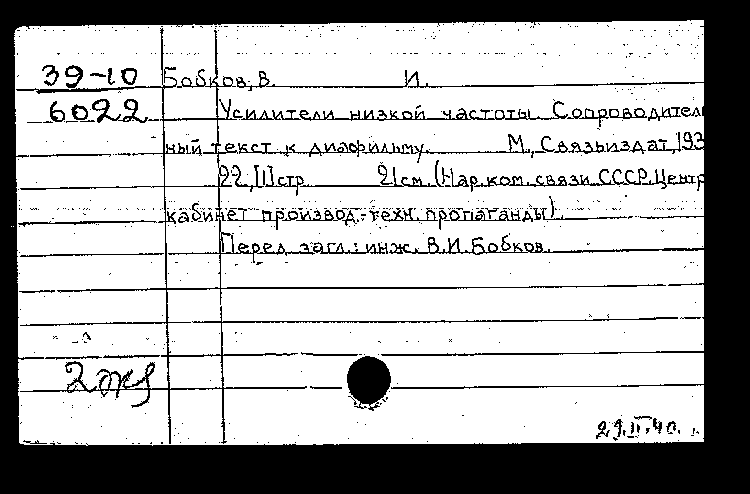 39-10 Бобков, В. И.
6022 Усилители низкой частоты. Сопроводитель
ный текст к диафильму. М., Связьиздат, 193
22, [1] стр. 21 см. (Нар. ком. связи СССР. Центр.
кабинет производ.-техн. пропаганды).
Перед загл.: инж. В. И. Бобков.
2 экз
29.II.40.